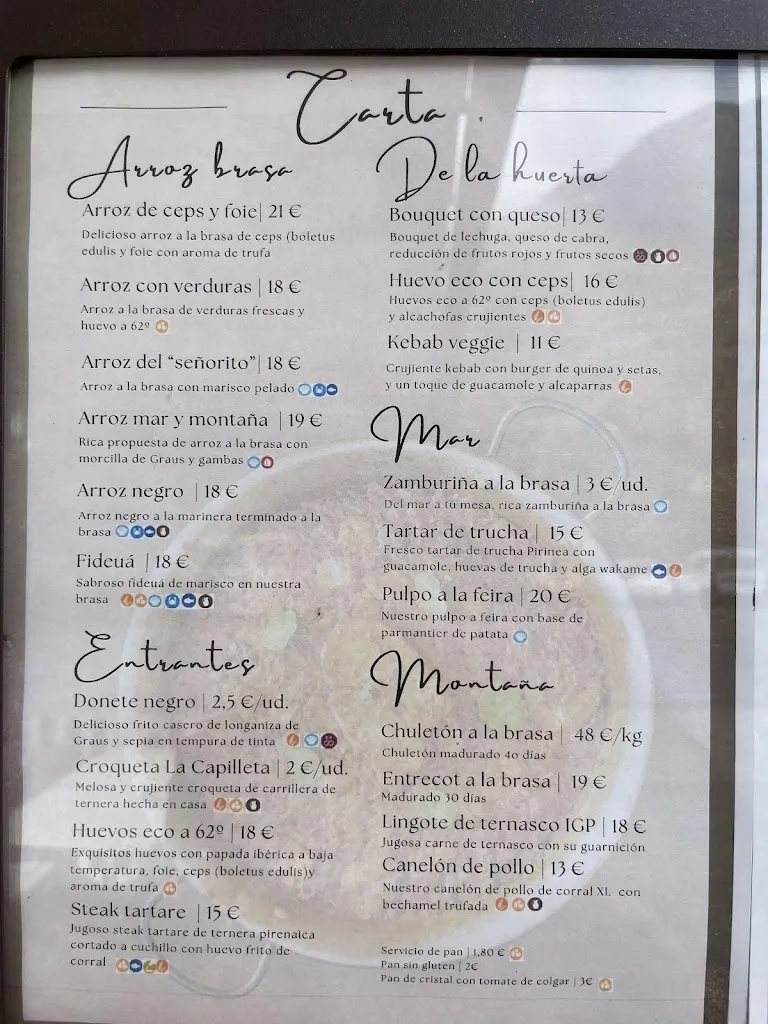 Carta.
Arroz brasa
Arroz de ceps y foie| 21 €
Delicioso arroz a la brasa de ceps (boletus
edulis y foie con aroma de trufa
Arroz con verduras | 18 €
Arroz a la brasa de verduras frescas y
huevo a 62º
Arroz del “señorito”| 18 €
Arroz a la brasa con marisco pelado
Arroz mar y montaña | 19 €
Rica propuesta de arroz a la brasa con
morcilla de Graus y gambas
Arroz negro | 18 €
Arroz negro a la marinera terminado a la
brasa
Fideuá | 18 €
Sabroso fideuá de marisco en nuestra
brasa
Entrantes
Donete negro | 2,5 €/ud.
Delicioso frito casero de longaniza de
Graus y sepia en tempura de tinta
Croqueta La Capilleta | 2 €/ud.
Melosa y crujiente croqueta de carrillera de
ternera hecha en casa
Huevos eco a 62º | 18 €
Exquisitos huevos con papada ibérica a baja
temperatura, foie, ceps (boletus edulis)y
aroma de trufa
Steak tartare | 15 €
Jugoso steak tartare de ternera pirenaica
cortado a cuchillo con huevo frito de
corral
De la huerta
Bouquet con queso| 13 €
Bouquet de lechuga, queso de cabra,
reducción de frutos rojos y frutos secos
Huevo eco con ceps| 16 €
Huevos eco a 62º con ceps (boletus edulis)
y alcachofas crujientes
Kebab veggie | 11 €
Crujiente kebab con burger de quinoa y setas,
y un toque de guacamole y alcaparras
Mar
Zamburiña a la brasa | 3 €/ud.
Del mar a tu mesa, rica zamburiña a la brasa
Tartar de trucha | 15 €
Fresco tartar de trucha Pirinea con
guacamole, huevas de trucha y alga wakame
Pulpo a la feira | 20 €
Nuestro pulpo a feira con base de
parmantier de patata
Montaña
Chuletón a la brasa | 48 €/kg
Chuletón madurado 40 días
Entrecot a la brasa | 19 €
Madurado 30 días
Lingote de ternasco IGP | 18 €
Jugosa carne de ternasco con su guarnición
Canelón de pollo | 13 €
Nuestro canelón de pollo de corral XL con
bechamel trufada
Servicio de pan | 1,80 €
Pan sin gluten | 2€
Pan de cristal con tomate de colgar | 3€